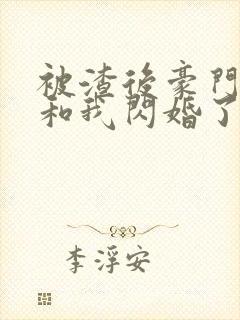 被渣後豪門
和我閃婚了
李浮安